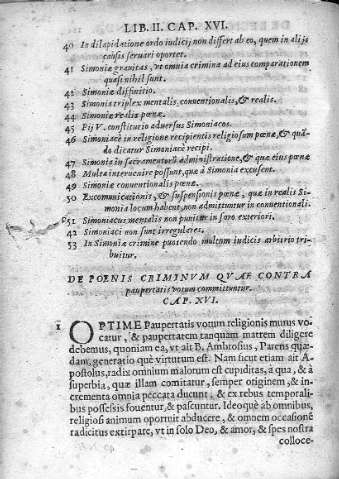 LIB. II. CAP. XVI.
40 In dilapidatione ordo iudicij non differt ab eo, quem in alijs
causis seruari oportet.
41 Simoniæ grauitas, vt omnia crimina ad eius comparationem
quasi nihil sunt.
42 Simoniæ diffinitio.
43 Simonia triplex mentalis, conuentionalis, & realis.
44 Simoniæ realis pœnæ.
45 Pij V. constitutio aduersus Simoniacos.
46 Simoniacè in religione recipientis religiosum pœnæ, & quā-
do dicatur Simoniacè recipi.
47 Simonia in sacramentorū administratione, & quæ eius pœnæ
48 Multa interuenire possunt, quæ à Simonia excusent.
49 Simoniæ conuentionalis pœnæ.
50 Excomunicationis, & suspensionis pœnæ, quæ in realis Si-
monia locum habent, non admittuntur in conuentionali.
51 Simoniacus mentalis non punitur in foro exteriori.
42 Simoniaci non sunt irregulares.
53 In Simoniæ crimine puniendo multum iudicis arbitrio tri-
buitur.
DE POENIS CRIMINVM QVAE CONTRA
paupertatis votum committuntur.
CAP. XVI.
1 OPTIME Paupertatis votum religionis murus vo
catur, & paupertatem tanquam matrem diligere
debemus, quoniam ea, vt ait B. Ambrosius, Parens quæ-
dam, generatio què virtutum est. Nam sicut etiam ait A-
postolus, radix omnium malorum est cupiditas, à qua, & à
superbia, quæ illam comitatur, semper originem, & in-
crementa omnia peccata ducunt, & ex rebus temporali-
bus possessis fouentur, & pascuntur. Ideoquè ab omnibus,
religiosi animum oportuit abducere, & omnem occasionē
radicitus extirpare, vt in solo Deo, & amor, & spes nostra
colloce-